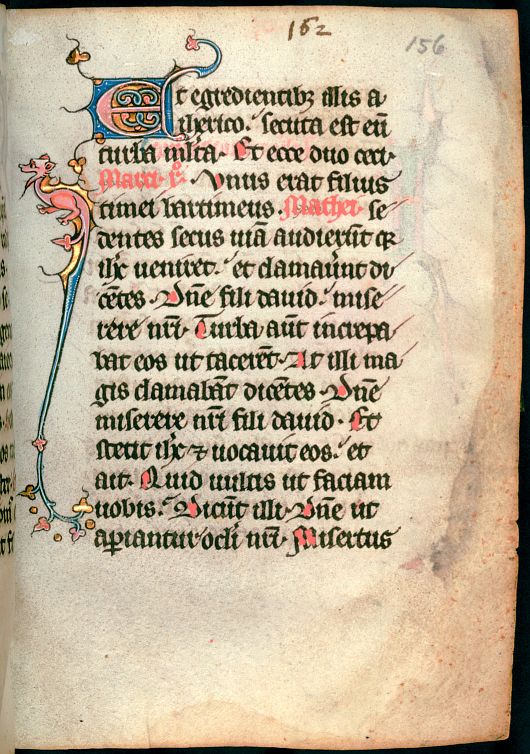 162
156
Et egredientibꝫ illis a
iherico. secuta est eū
turba ml̅ta. Et ecce duo ceci.
Marci. Vnus erat filius
timei bartimeus. Mathei. se
dentes secus uiā audierūt qꝛ
ihc̅ ueniret. et clamauerūt di
cētes. Dn̅e fili dauid. mise
rere nr̅i. Turba aūt increpa
bat eos ut tacerēt. At illi ma
gis clamabāt dicētes. Dn̅e
miserere nr̅i fili dauid. Et
stetit ihc̅ ⁊ uocauit eos. et
ait. Quid uultis ut faciam
uobis. Dicūt illi. Dn̅e ut
aperiantur oc̅li nr̅i. Misertus